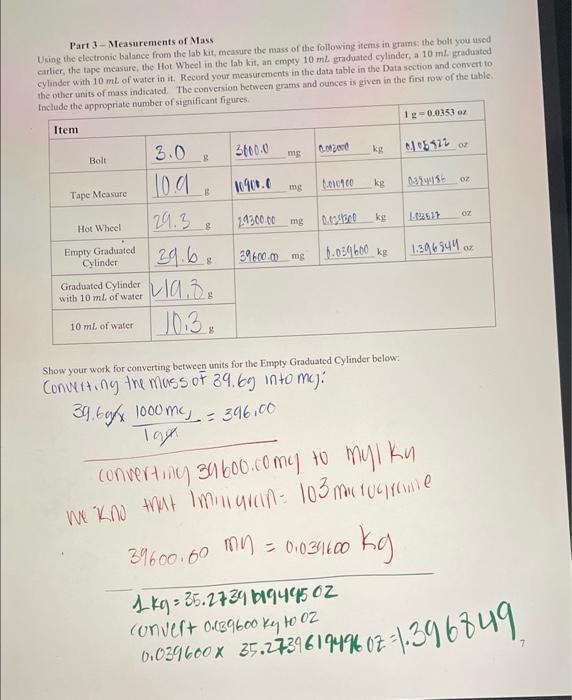 Part 3 – Measurements of Mass
Using the electronic balance from the lab kit, measure the mass of the following items in grams: the bolt you used
earlier, the tape measure, the Hot Wheel in the lab kit, an empty 10 mL graduated cylinder, a 10 mL graduated
cylinder with 10 mL of water in it. Record your measurements in the data table in the Data section and convert to
the other units of mass indicated. The conversion between grams and ounces is given in the first row of the table.
Include the appropriate number of significant figures.
Item 1 g = 0.0353 oz
Bolt 3.0 g 3000.0 mg 0.003000 kg 0.105822 oz
Tape Measure 10.9 g 10900.0 mg 0.010900 kg 0.384486 oz
Hot Wheel 29.3 g 29300.00 mg 0.029300 kg oz
Empty Graduated Cylinder 39.6 g 39600.00 mg 0.039600 kg 1.396849 oz
Graduated Cylinder with 10 mL of water 49.8 g
10 mL of water 10.3 g
Show your work for converting between units for the Empty Graduated Cylinder below:
Converting the mass of 39.6g into mg:
39.6g x 1000mg = 396,00
1g
converting 39600.00mg to mg/kg
we kno that 1milligram = 103 microgramme
39600.60 mn = 0.039600 kg
1kg = 35.2739619495 OZ
convert 0.039600 kg to OZ
0.039600 x 35.27396194960Z = 1.396849
7